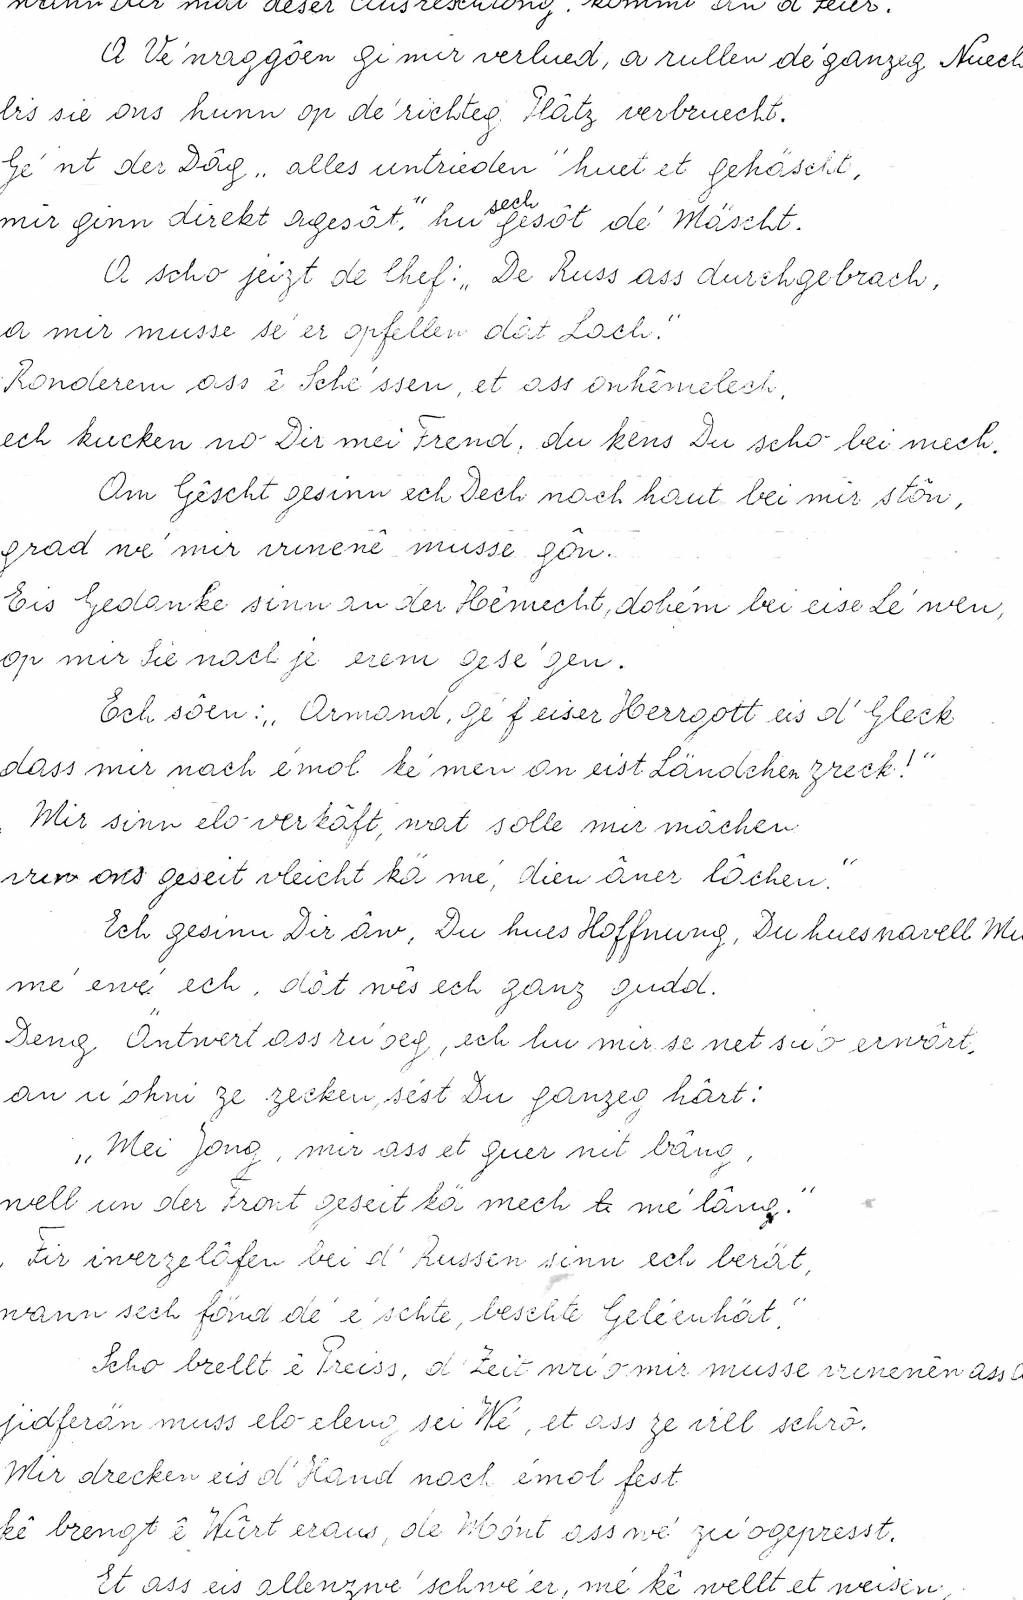 wann Dir mat deser Ausreschtong. kommt an d'Feier.
A Vé'nraggôen gi mir verlued, a rullen dé'ganzeg Nuech
bis sie ons hunn op dé'richteg Plâtz verbruecht.
Gé'nt der Dâg „alles untrieden" huet et gehäscht,
mir ginn direkt agesât." hu sech gesôt dé' Mäscht.
A scho jeizt de Chef: „De Russ ass durchgebrach,
a mir musse sé'er opfëllen dât Lach."
Ronderem ass ê Sché'ssen, et ass onhêmelech,
ech kucken no Dir mei Frend, du kens Du scho bei mech.
Am Gêscht gesinn ech Dech noch haut bei mir stôn,
grad wé'mir vunenê musse gôn.
Eis Gedanke sinn an der Hêmecht, dohém bei eise Lé'wen,
op mir Sie nach je erem gesé'gen.
Ech sôen: „Armand, gé'f eiser Herrgott eis d'Gleck
dass mir nach émol ké'men an eist Ländchen zreck!"
Mir sinn elo verkâft, wat solle mir mâchen
vun ons geseit vleicht kä mé', dien âner lâchen."
Ech gesinn Dir âw, Du hues Hoffnung, Du hues navell Mu
mé' ewé' ech, dât wês ech ganz gudd.
Deng Äntwert ass rú'oeg, ech hu mir se net sú'o erwârt,
an ú'ohni ze zecken, sést Du ganzeg hârt:
„Mei Jong, mir ass et guer nit bâng,
well un der Front geseit kä mech mé' lâng."
Fir iwerzelâfen bei d'Russen sinn ech berät,
wann sech fönd dé' é'schte, beschte Geléenhät."
Scho brellt ê Preiss, d'Zeit wú'o mir musse vunenên ass
jidferän muss elo eleng sei Wé', et ass ze vill schrô.
Mir drecken eis d'Hand noch émol fest
kê brengt ê Wûrt eraus, de Mónt ass wé' zú'ogepresst.
Et ass eis allenzwé'schwé'er, mé' kê wellt et weisen,